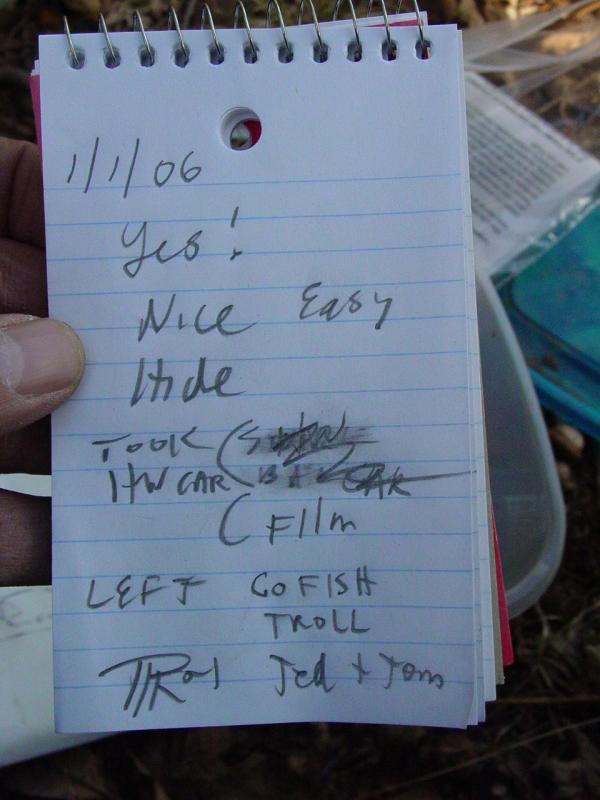 1/1/06
Yes!
Nice Easy
Hide
TOOK
HW CAR CAR
(Film
LEFT GO FISH
TROLL
Jed + Tom